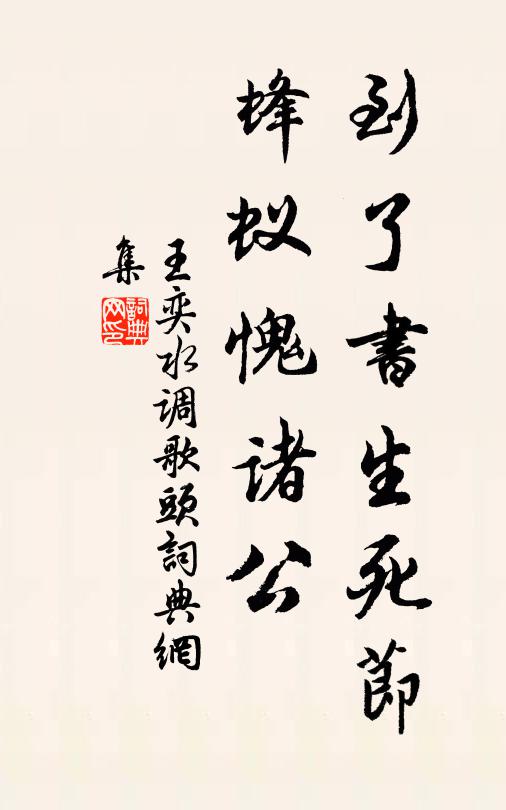 到了書生死節
蜂蚁愧诸公
王奕水调歌頭詞典網
集
詞典
网印